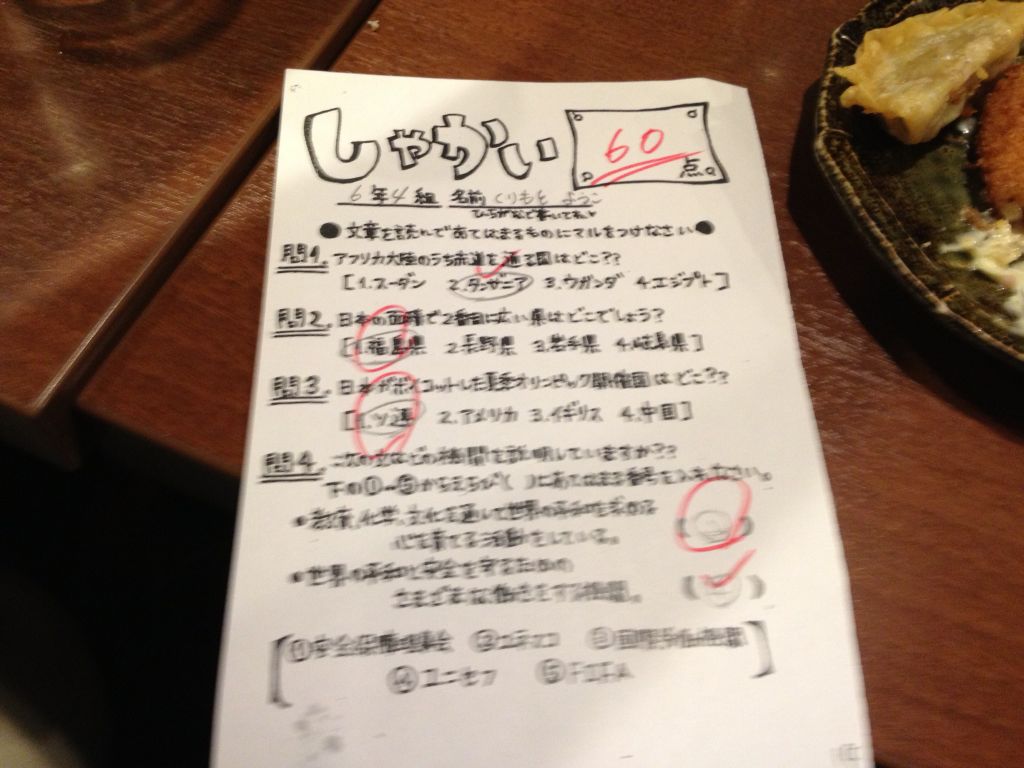 しゃかい
60
点
6年4組 名前 くりもと ようこ
●文章を読んであてはまるものにマルをつけなさい●
問1. アフリカ大陸のうち赤道を通る国はどこ??
[1.スーダン 2.タンザニア 3.ウガンダ 4.エジプト]
問2. 日本の面積で2番目に広い県はどこでしょう?
[1.福島県 2.長野県 3.岩手県 4.岐阜県]
問3. 日本がボイコットした夏季オリンピック開催国はどこ??
[1.ソ連 2.アメリカ 3.イギリス 4.中国]
問4. 次の文はどの機関を説明していますか??
下の①～⑤からえらび( )にあてはまる番号を入れなさい。
・教育、化学、文化を通して世界の平和をもとめる
心を育てる活動をしている。
・世界の平和と安全を守るための
さまざまな働きをする機関。
[①安全保障理事会 ②ユネスコ ③国際
④ユニセフ ⑤FIFA]